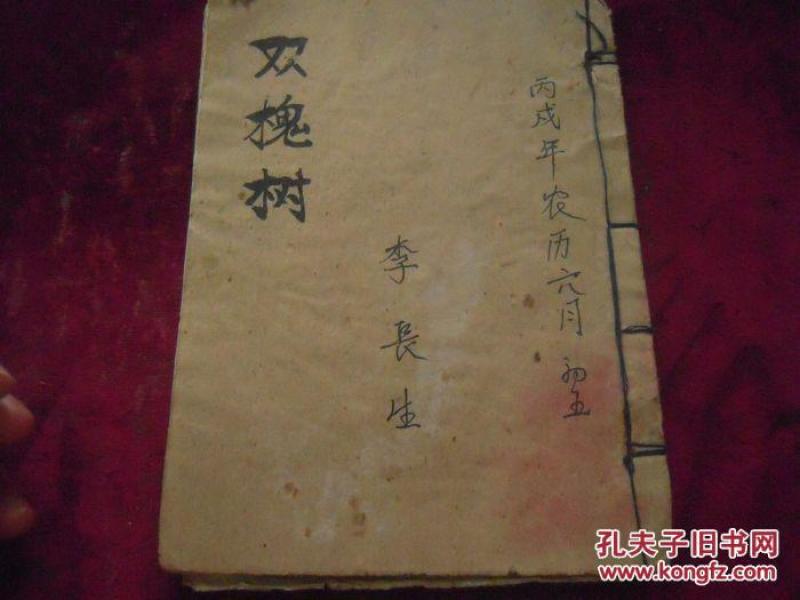 丙戌年农历六月初五
李長生
双槐树
孔夫子旧书网
www.kongfz.com